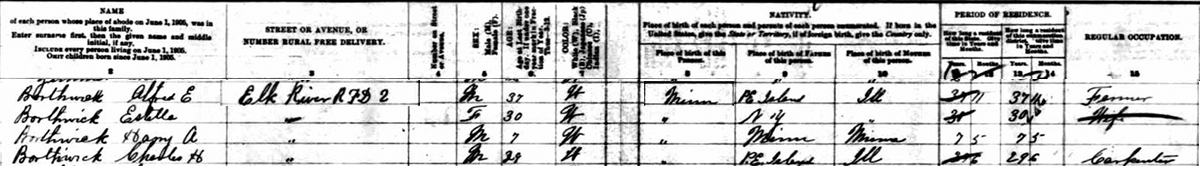 NAME
of each person whose place of abode on June 1, 1905, was in this family.
Enter surname first, then the given name and middle initial, if any.
INCLUDE every person living on June 1, 1905.
OMIT children born since June 1, 1905.
STREET OR AVENUE, OR NUMBER RURAL FREE DELIVERY.
Number on Street or Avenue.
SEX:
Male (M), Female (F).
AGE:
COLOR
NATIVITY.
Place of birth of each person and parents of each person enumerated. If born in the United States, give the State or Territory, if of foreign birth, give the Country only.
Place of birth of this Person.
Place of birth of FATHER of this person.
Place of birth of MOTHER of this person.
PERIOD OF RESIDENCE.
REGULAR OCCUPATION.
Years. Months. Years. Months.
2 3 4 5 6 7 8 9 10 13 14 15
Borthwick Alfred E Elk River R.F.D 2 M 37 W Minn P.E. Island Ill Farmer
Borthwick Estella " F 30 W " N Y "
Borthwick Harry A " M 7 W " Minn Minn 7 5 7 5
Borthwick Charles H " M 29 W " P.E. Island Ill 29 6 Carpenter